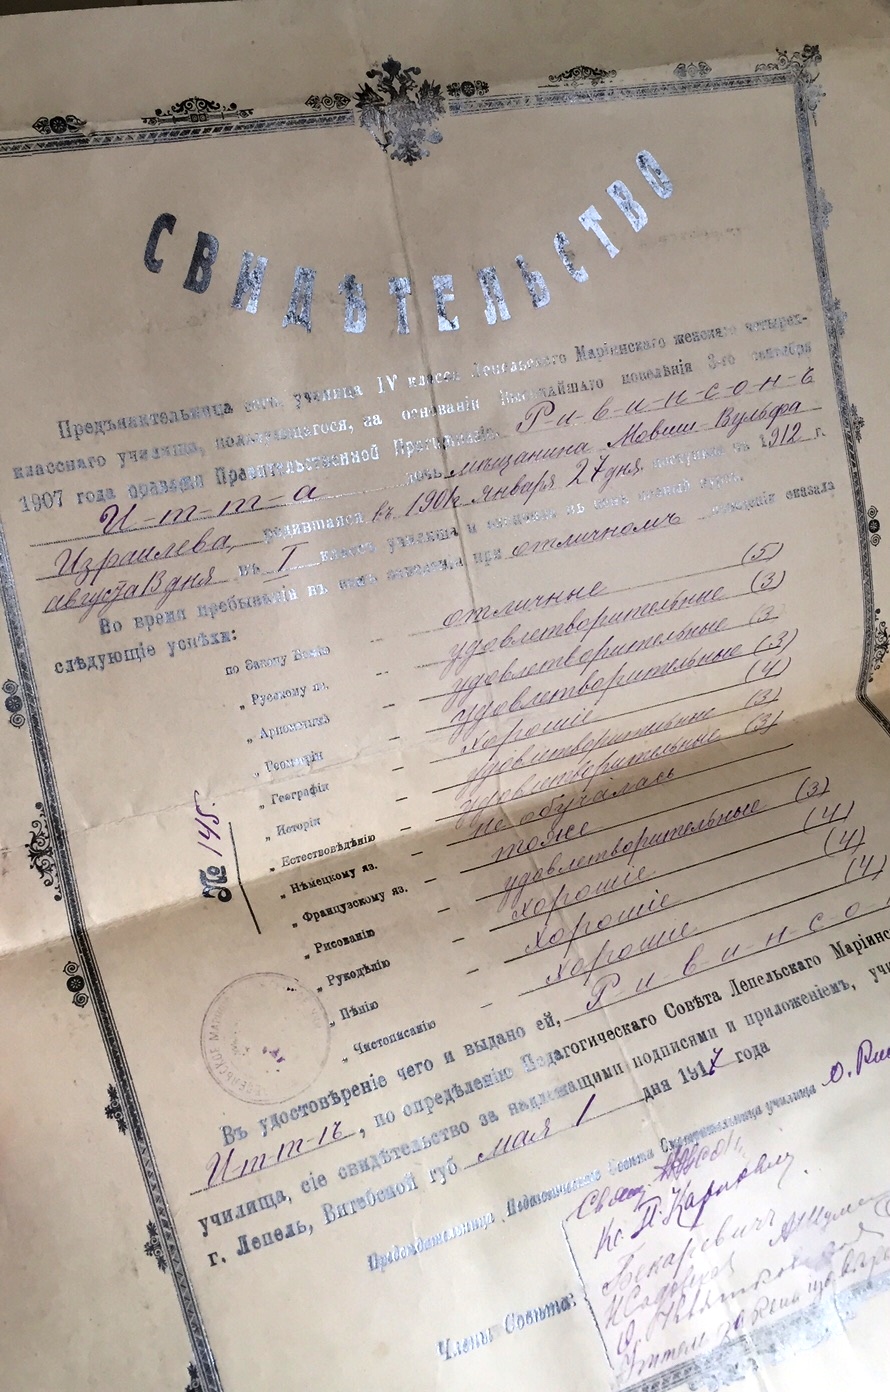 СВИДѢТЕЛЬСТВО
Предъявительница сего, ученица IV класса Лепельскаго Маріинскаго женскаго четырех-
класснаго училища, пользующагося, на основаніи Высочайшаго повелѣнія 3-го сентября
1907 года правами Правительственной Прогимназіи, Р-и-в-и-н-с-о-н-ъ
И-т-т-а дочь мѣщанина Мовши-Вульфа
Израилева, родившаяся въ 190 января 27 дня поступила въ 1912 г.
августа 13 дня въ I классъ училища и окончила въ немъ полный курсъ.
Во время пребыванія въ немъ при отличномъ поведеніи оказала
слѣдующіе успѣхи:
по Закону Божію -- отличные (5)
„ Русскому яз. -- удовлетворительные (3)
„ Ариѳметикѣ -- удовлетворительные (3)
„ Геометріи -- удовлетворительные (3)
„ Географіи -- хорошіе (4)
„ Исторіи -- удовлетворительные (3)
„ Естествовѣдѣнію -- удовлетворительные (3)
„ Нѣмецкому яз. -- не обучалась
„ Французскому яз. -- тоже
„ Рисованію -- удовлетворительные (3)
„ Рукодѣлію -- хорошіе (4)
„ Пѣнію -- хорошіе (4)
„ Чистописанію -- хорошіе (4)
№ 145.
Въ удостовѣреніе чего и выдано ей, Р-и-в-и-н-с-о-
И-т-т-ѣ, по опредѣленію Педагогическаго Совѣта Лепельскаго Маріинс
училища, сіе свидѣтельство за надлежащими подписями и приложеніемъ, учи
г. Лепель, Витебской губ мая 1 дня 1917 года
Предсѣдательница Педагогическаго Совѣта Смотрительница училища О.
Члены Совѣта:
Свящ.
Кс. П. Карпович.
Бекаревичъ